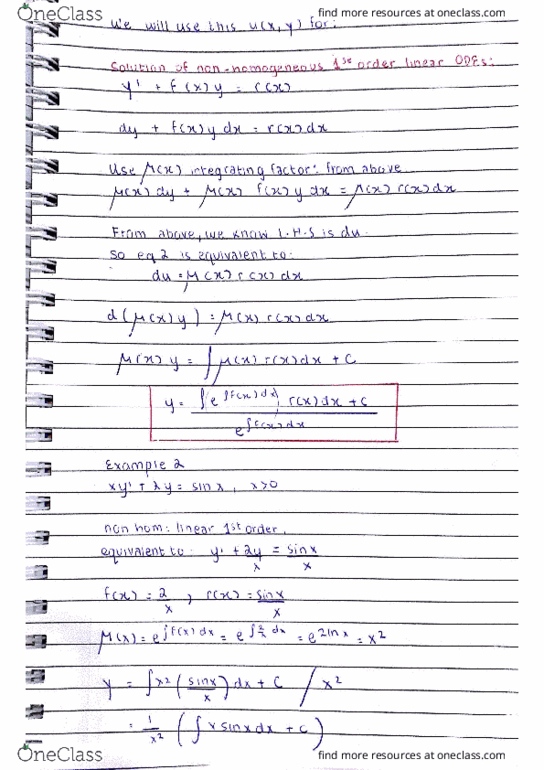 OneClass find more resources at oneclass.com
We will use this u(x, y) for:
Solution of non-homogeneous 1st order linear ODEs:
y' + f(x)y = r(x)
dy + f(x)y dx = r(x)dx
Use μ(x) integrating factor: from above
μ(x)dy + μ(x) f(x)y dx = μ(x) r(x)dx
From above, we know L.H.S is du.
So eq 2 is equivalent to:
du = μ(x) r(x) dx
d(μ(x)y) = μ(x) r(x)dx
μ(x) y = ∫ μ(x) r(x)dx + C
y = ∫e^∫f(x)dx r(x)dx + C / e^∫f(x)dx
Example 2
xy' + 2y = sinx, x>0
non hom: linear 1st order.
equivalent to: y' + 2y/x = sinx/x
f(x) = 2/x , r(x) = sinx/x
μ(x) = e^∫f(x)dx = e^∫2/x dx = e^2lnx = x²
y = ∫x² (sinx/x) dx + C / x²
= 1/x² (∫x sinx dx + C)
OneClass find more resources at oneclass.com